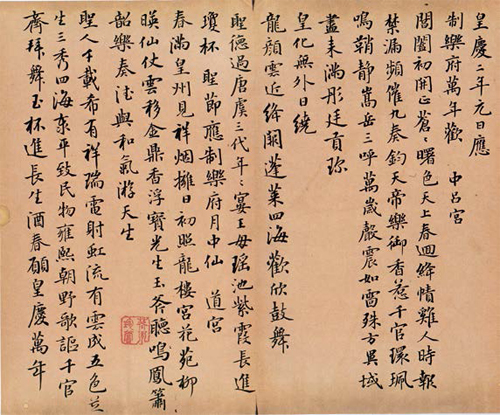 皇慶年元日應
制樂府萬年歡 中呂宮
閶闔初開正蒼〻曙色天上春迴絳幘雞人時報
禁漏頻催九奏鈞天帝樂御香惹千官環珮
鳴鞘靜嵩岳三呼萬歲聲震如雷殊方異域
盡来滿彤廷貢珍
皇化無外日繞
龍顏雲近絳闕蓬萊四海歡欣鼓舞
聖德過唐虞三代年〻宴王母瑤池紫霞長進
瓊杯 聖節應制樂府月中仙 道宮
春滿皇州見祥烟擁日初照龍樓宮花苑柳
暎仙仗雲移金鼎香浮寶光生玉斧聽鳴鳳簫
韶樂奏德與和氣游天生
聖人千載希有祥瑞電射虹流有雲成五色芝
生三秀四海泰平致民物雍熙朝野歌謳千官
齊拜舞玉杯進長生酒春願皇慶萬年